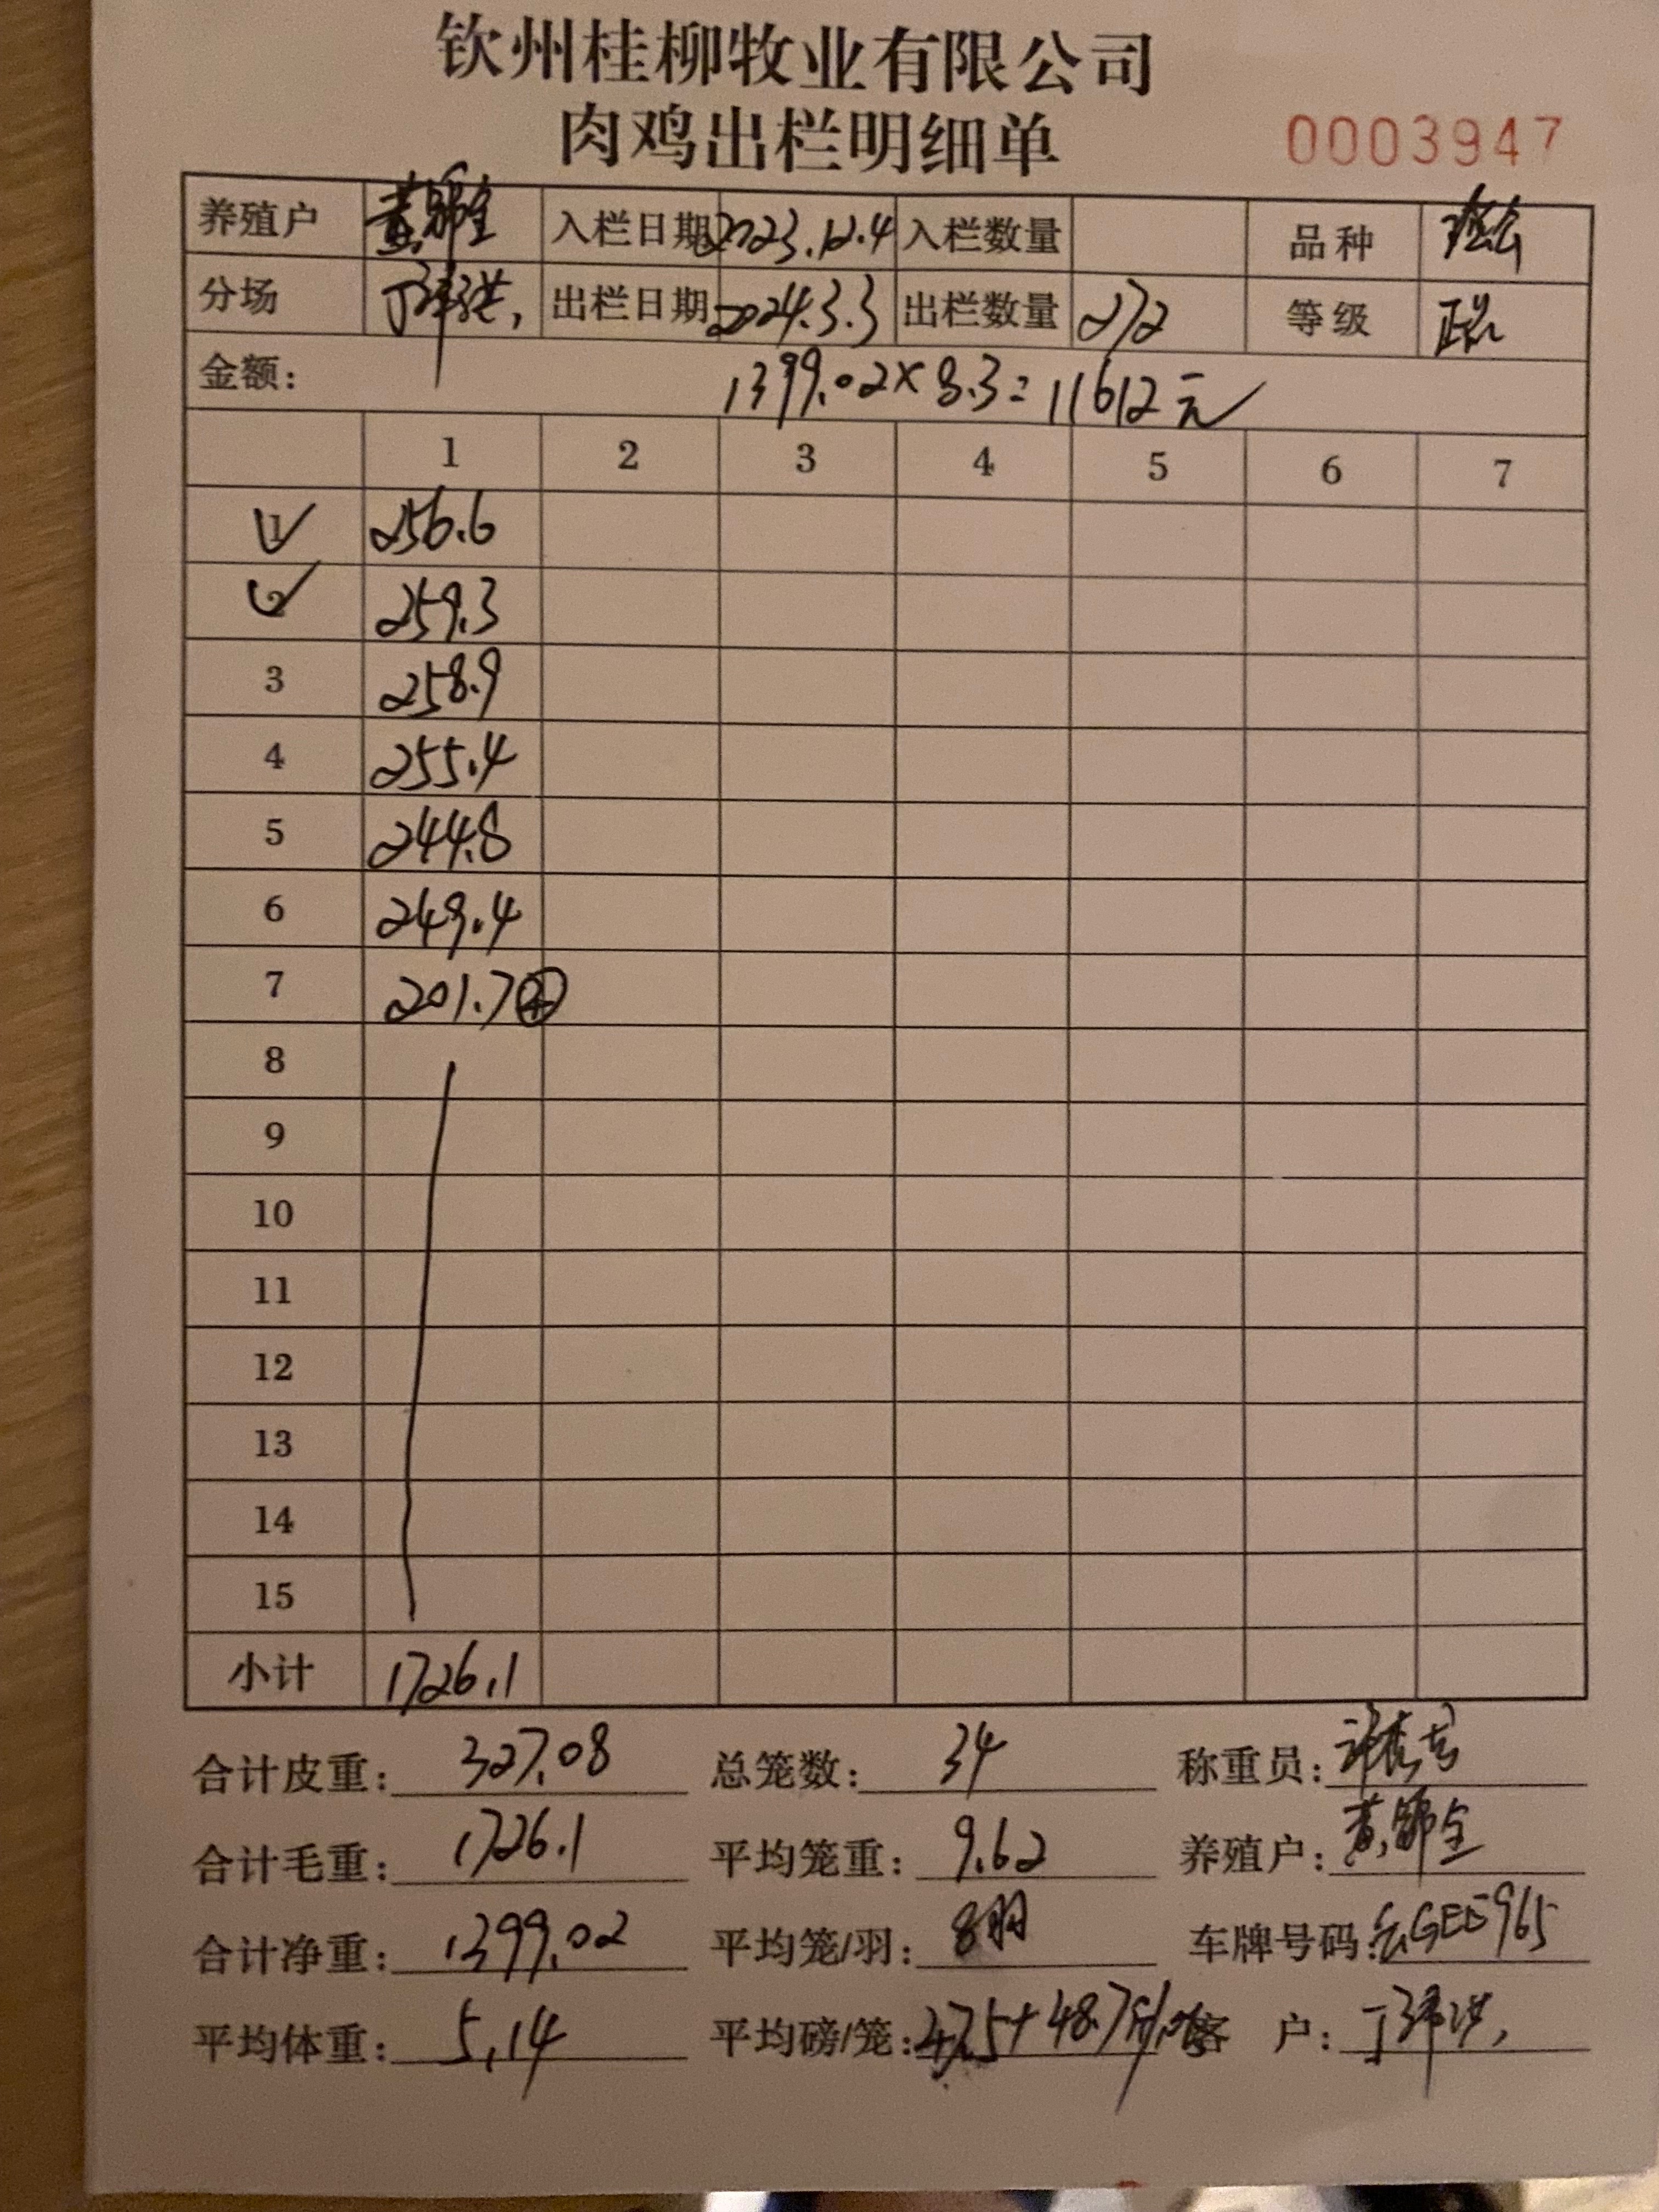 钦州桂柳牧业有限公司
肉鸡出栏明细单 0003947
养殖户 入栏日期 2023.12.4 入栏数量 品种
分场 出栏日期 2024.3.3 出栏数量 272 等级 正品
金额: 1399.02×8.3=11612元
1 2 3 4 5 6 7
1 256.6
2 259.3
3 258.9
4 255.4
5 244.8
6 249.4
7 201.7 ④
8
9
10
11
12
13
14
15
小计 1726.1
合计皮重: 327.08 总笼数: 34 称重员:
合计毛重: 1726.1 平均笼重: 9.62 养殖户:
合计净重: 1399.02 平均笼/羽: 8羽 车牌号码:
平均体重: 5.14 平均磅/笼: 客 户: